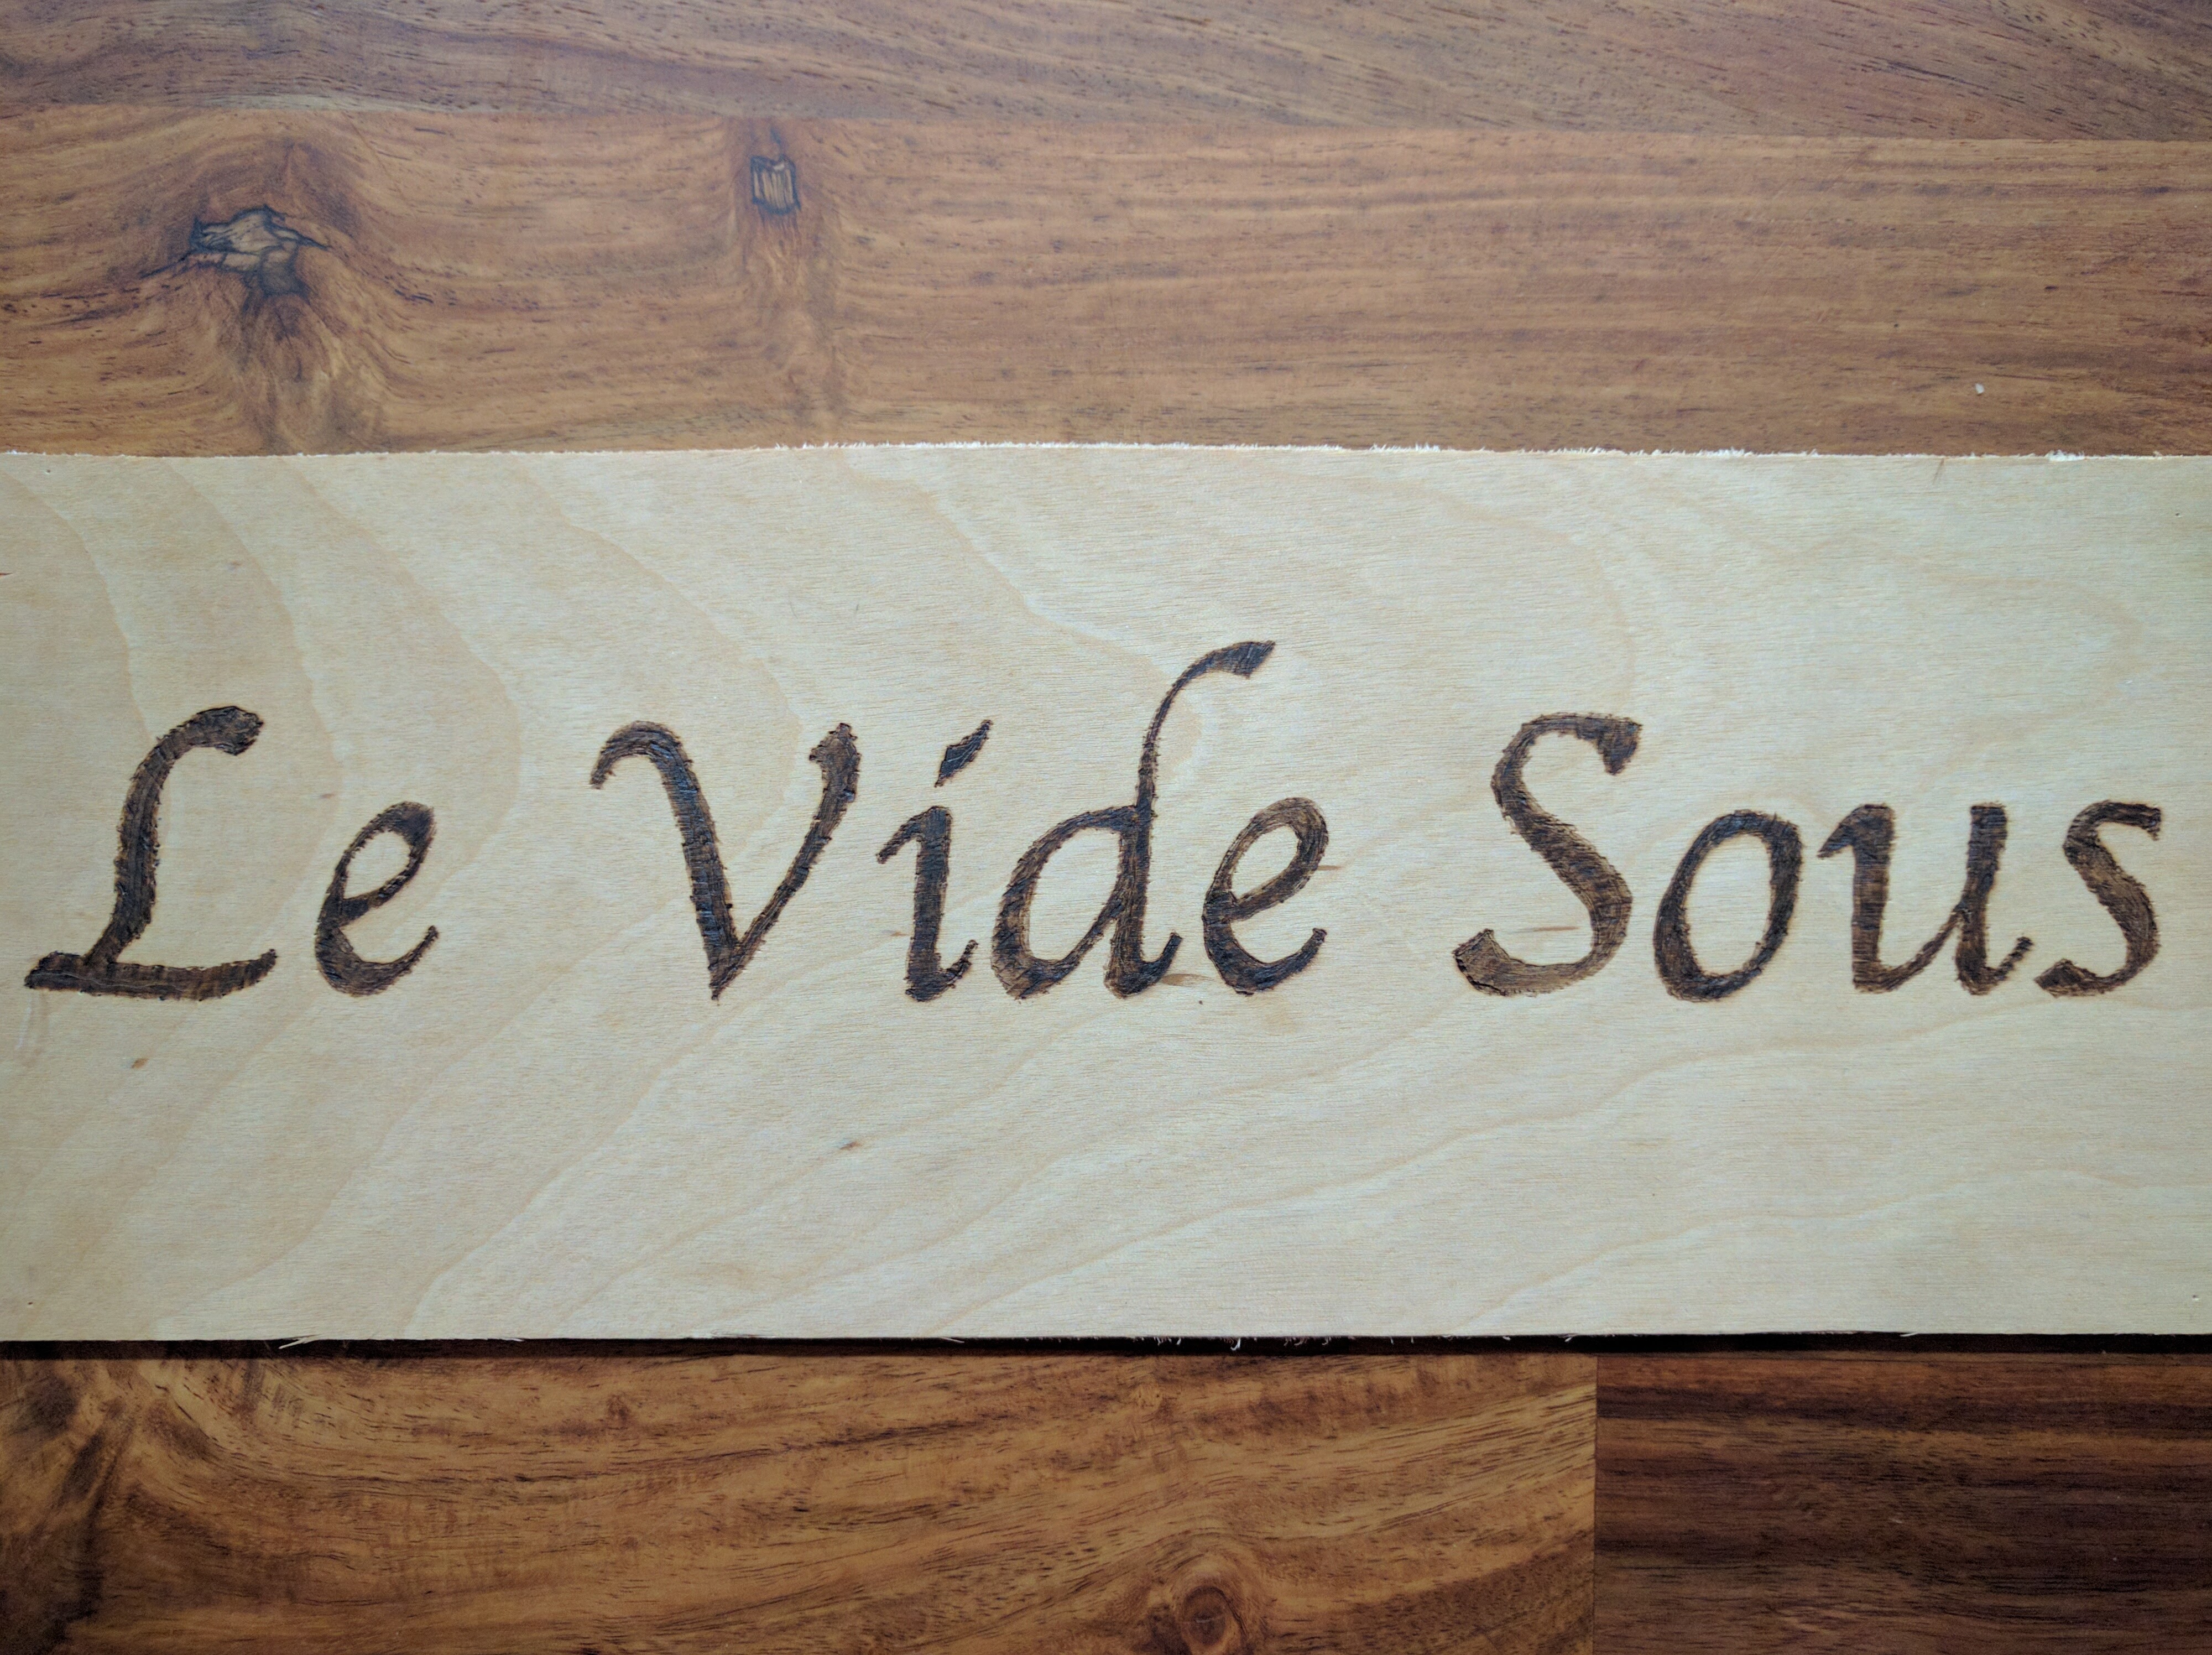 Le Vide Sous